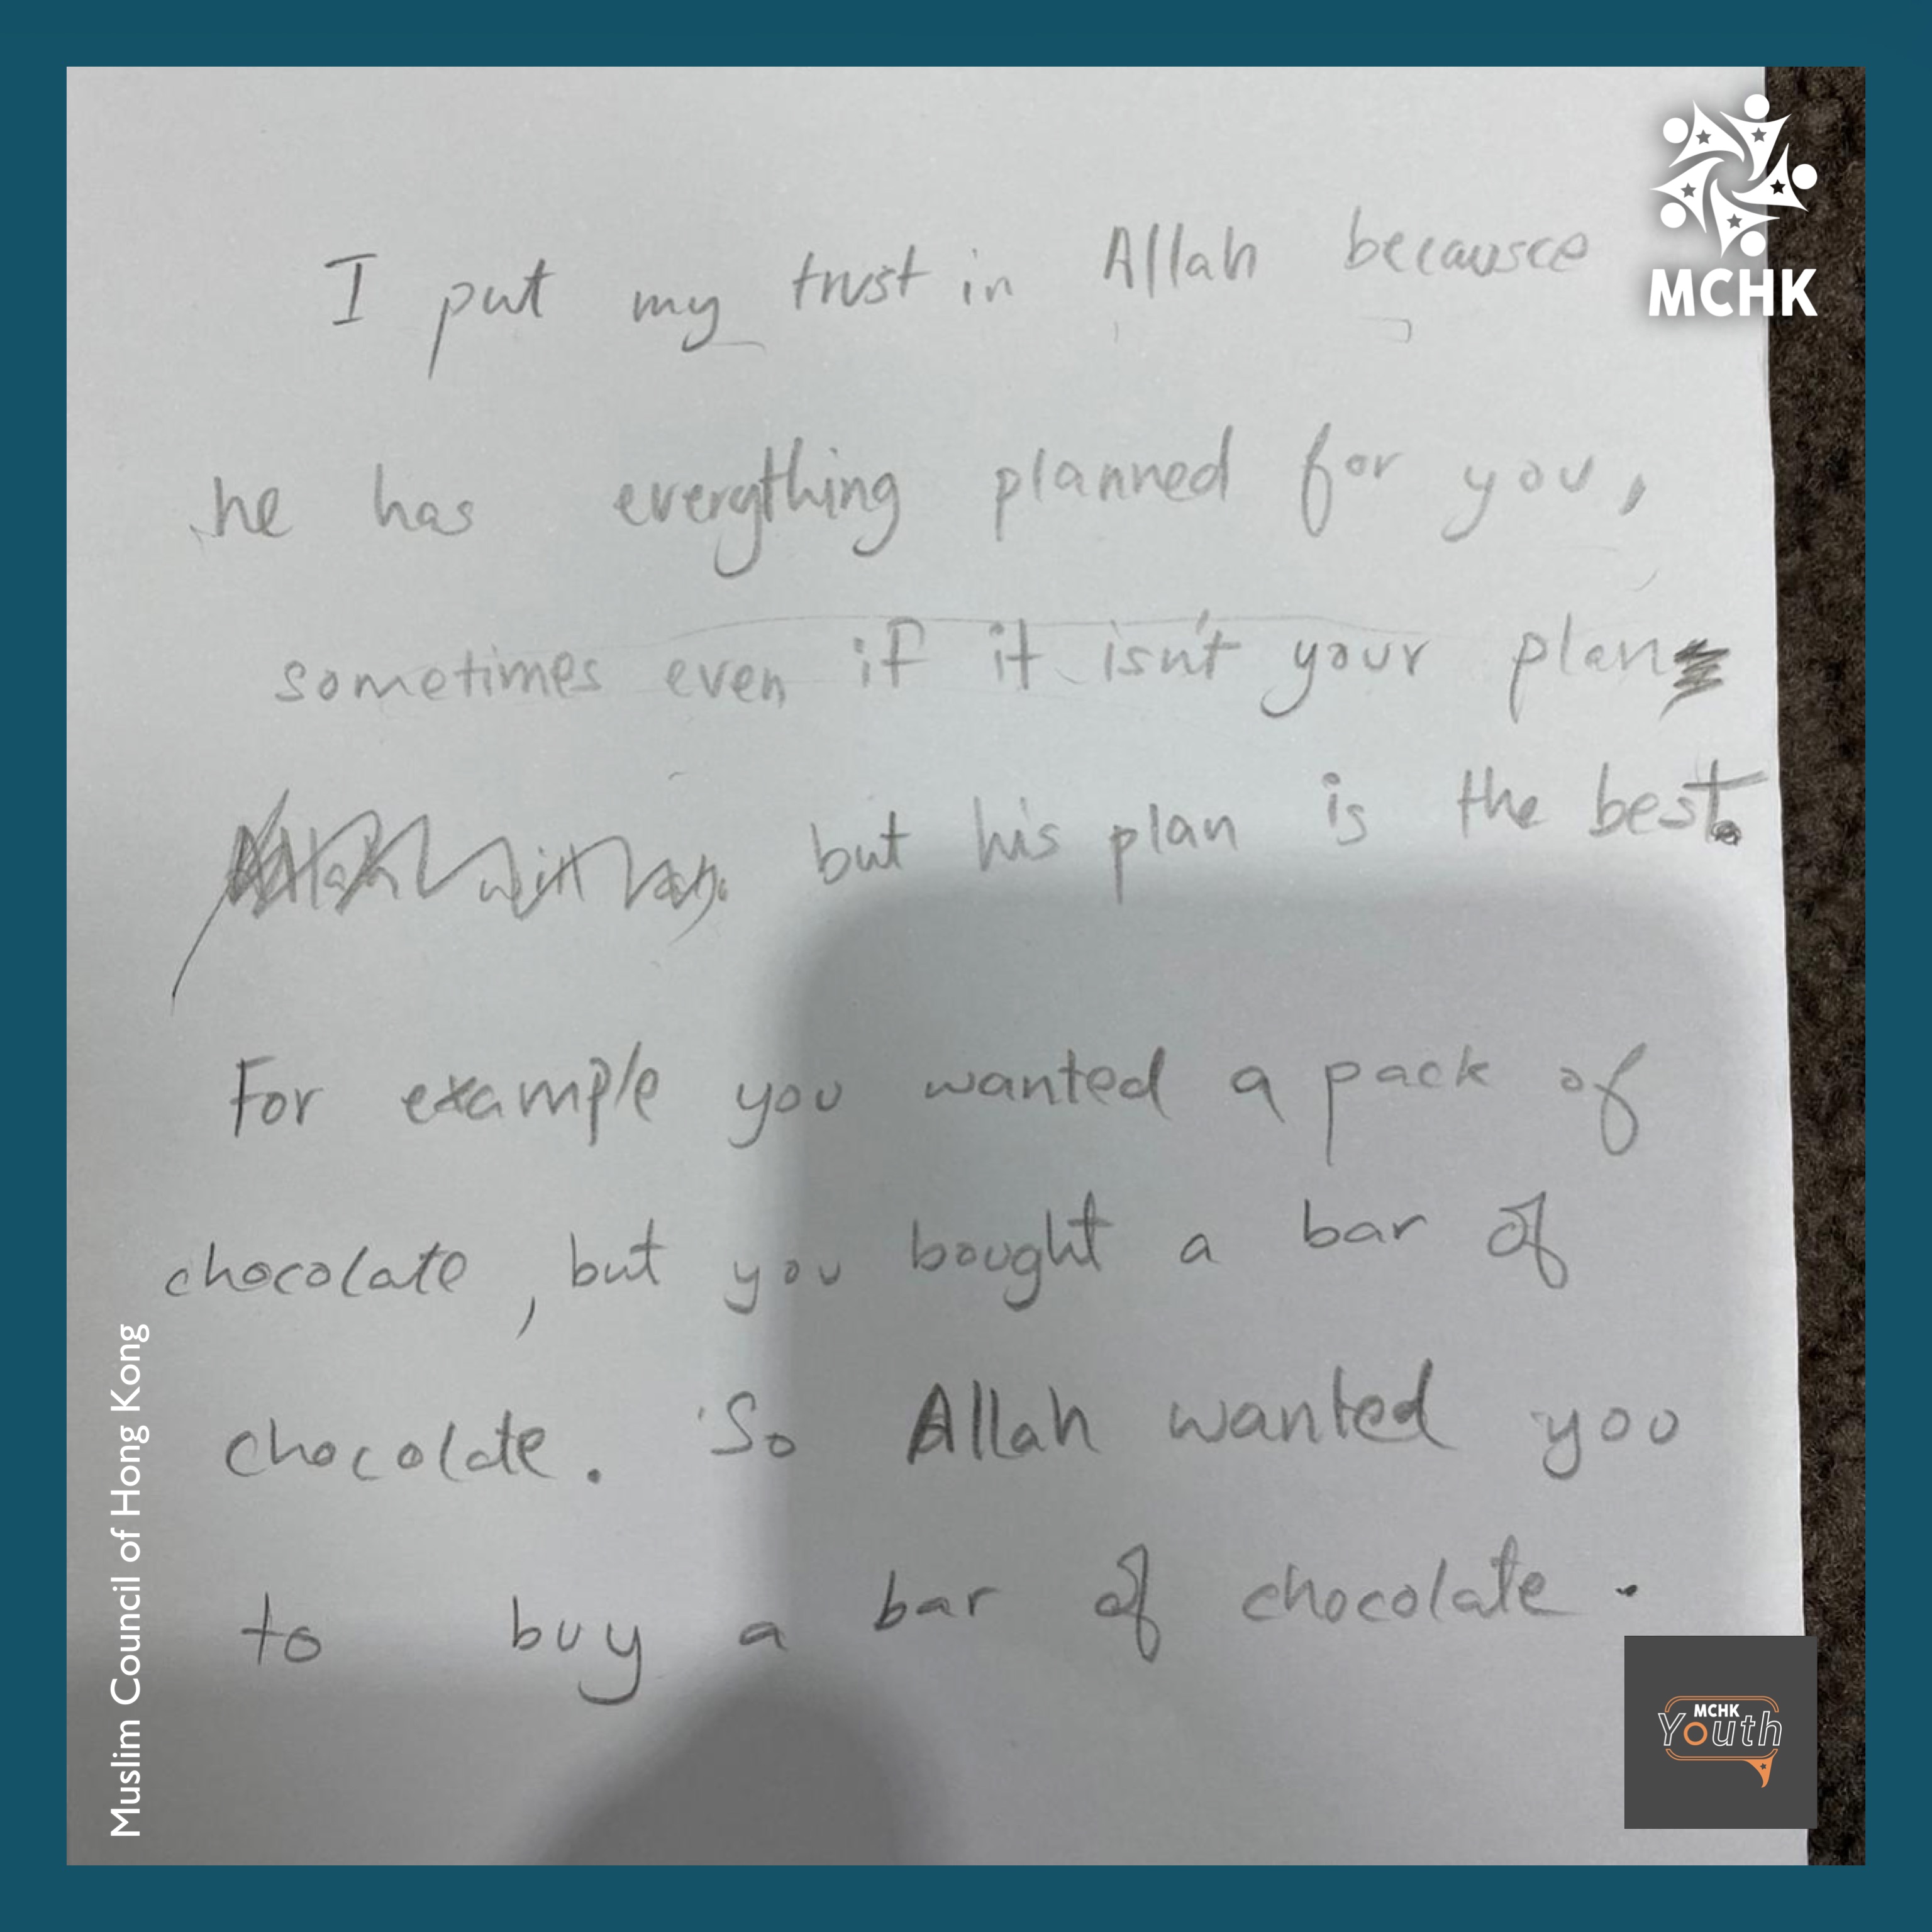 MCHK
I put my trust in Allah becausce
he has everything planned for you,
sometimes even if it isn't your plan
but his plan is the best.
For example you wanted a pack of
chocolate, but you bought a bar of
chocolate. So Allah wanted you
to buy a bar of chocolate.
Muslim Council of Hong Kong
MCHK
Youth